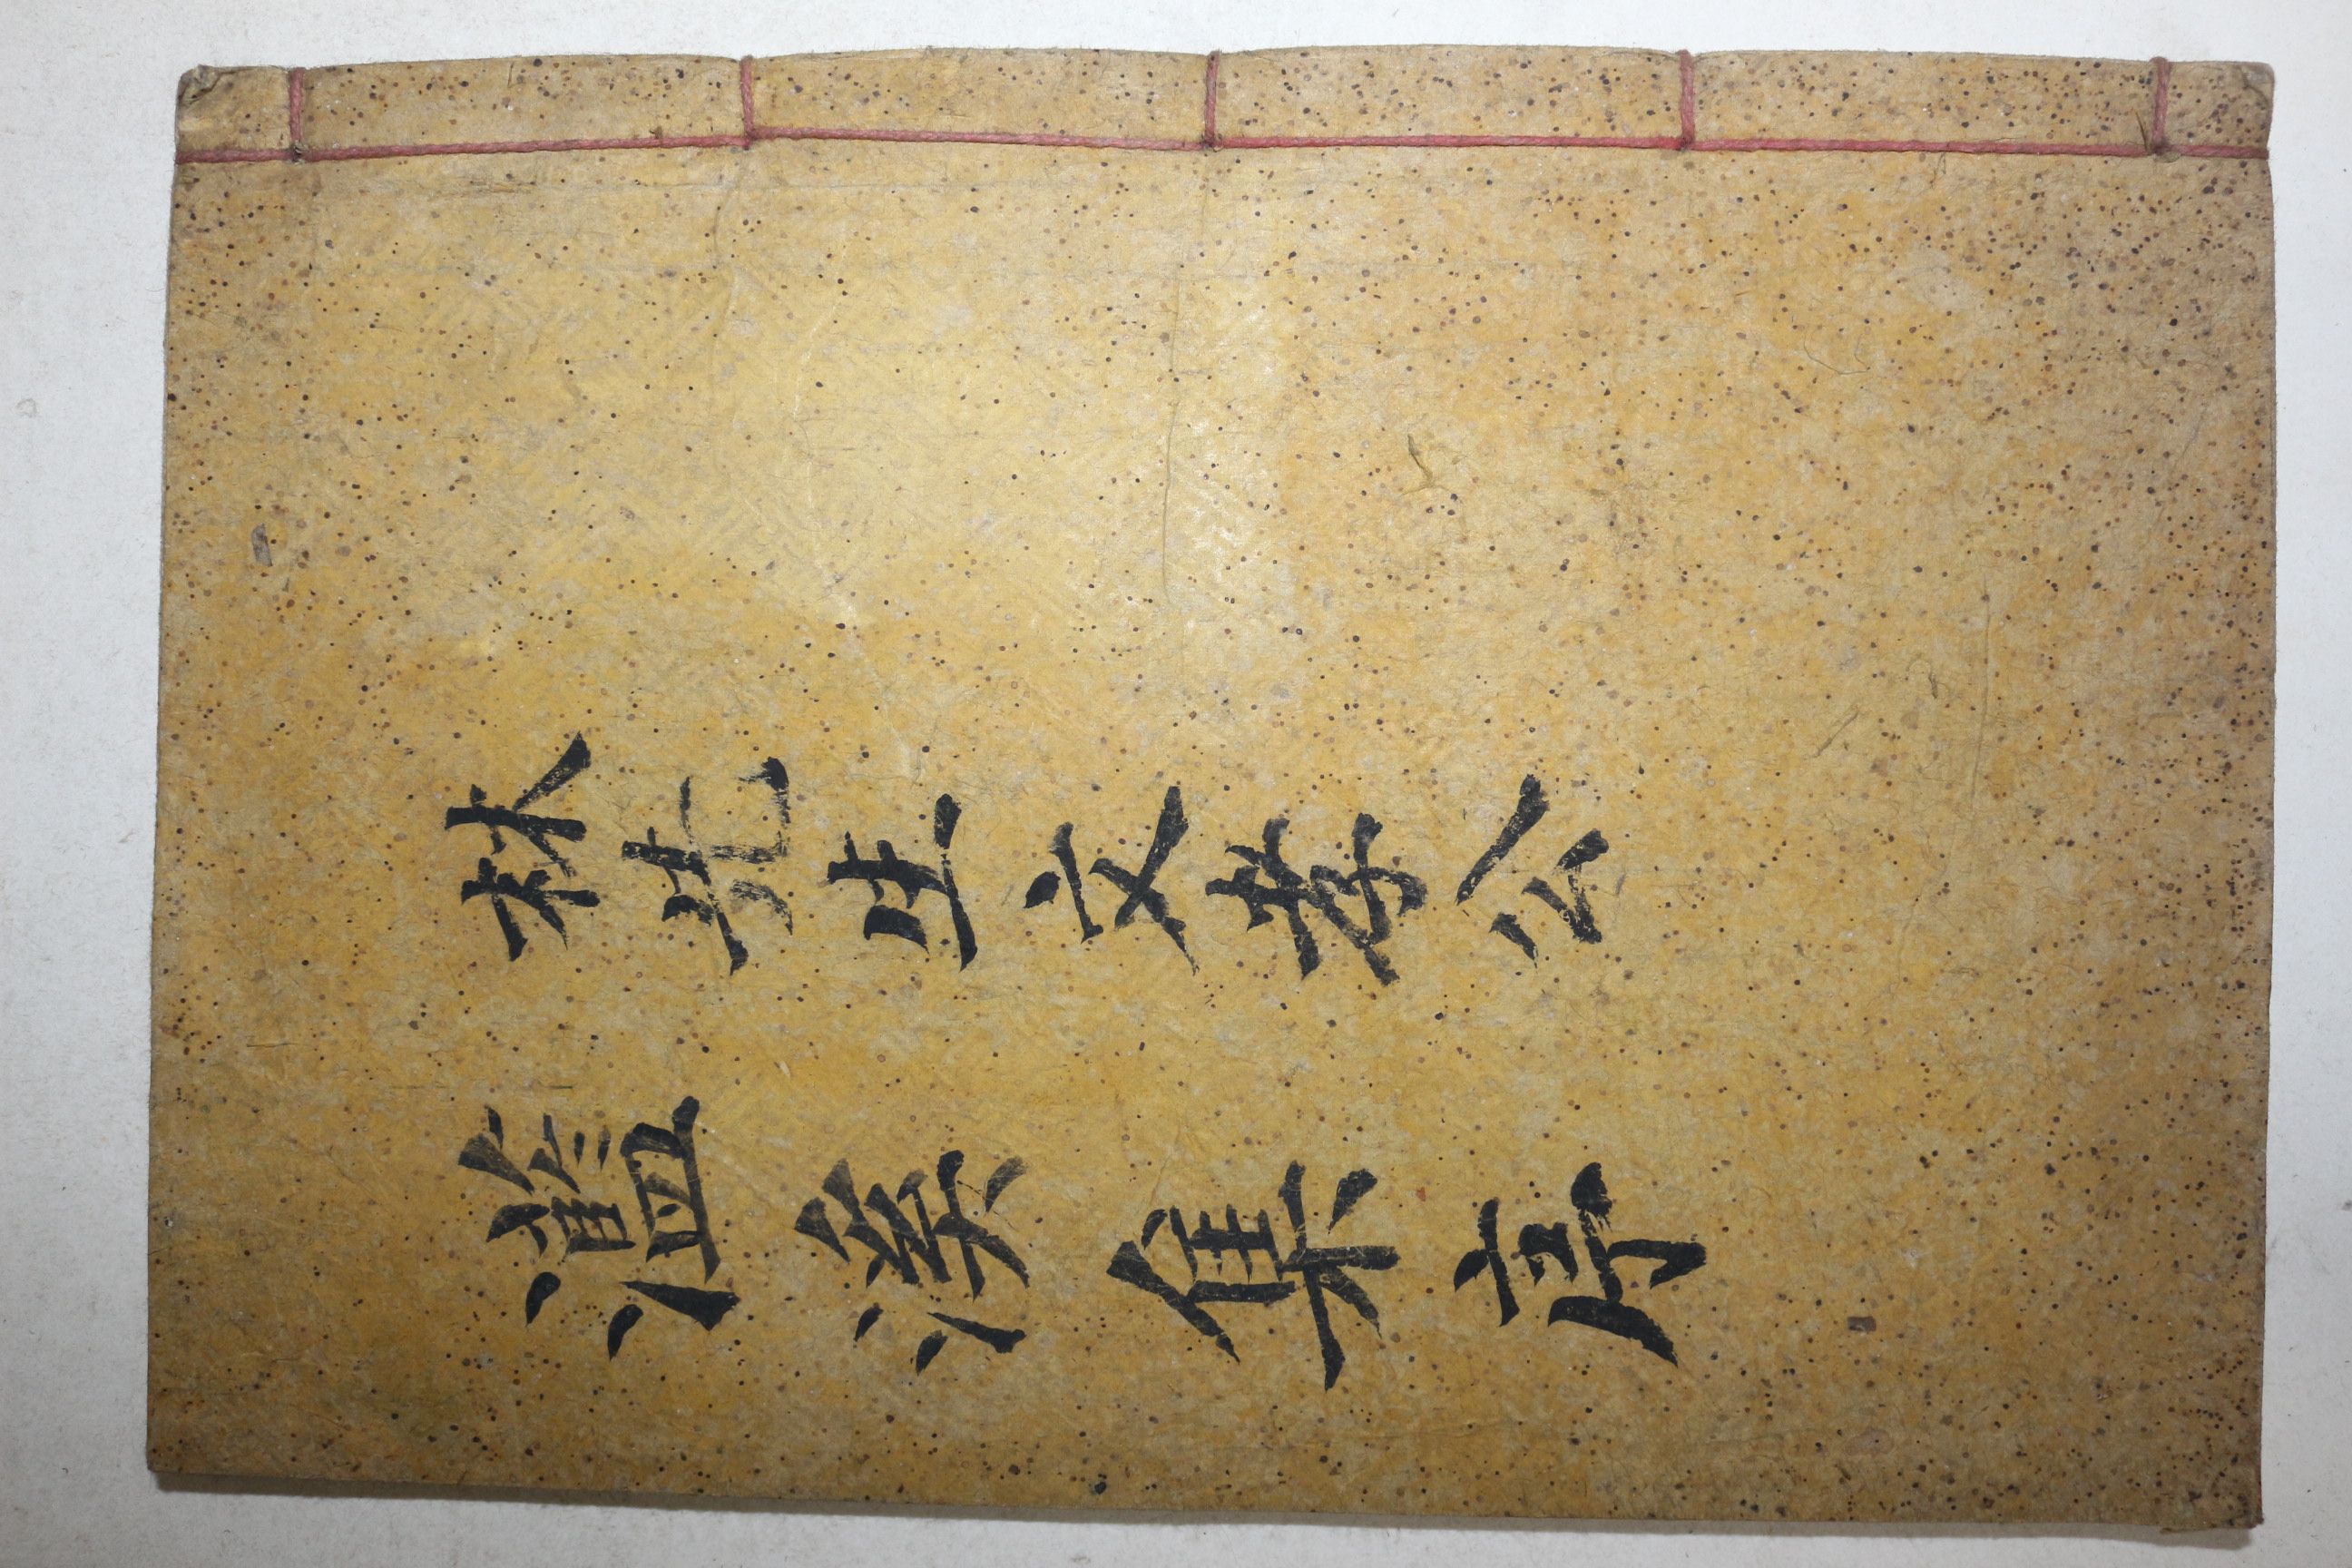 林先生文孝公
灆溪集序